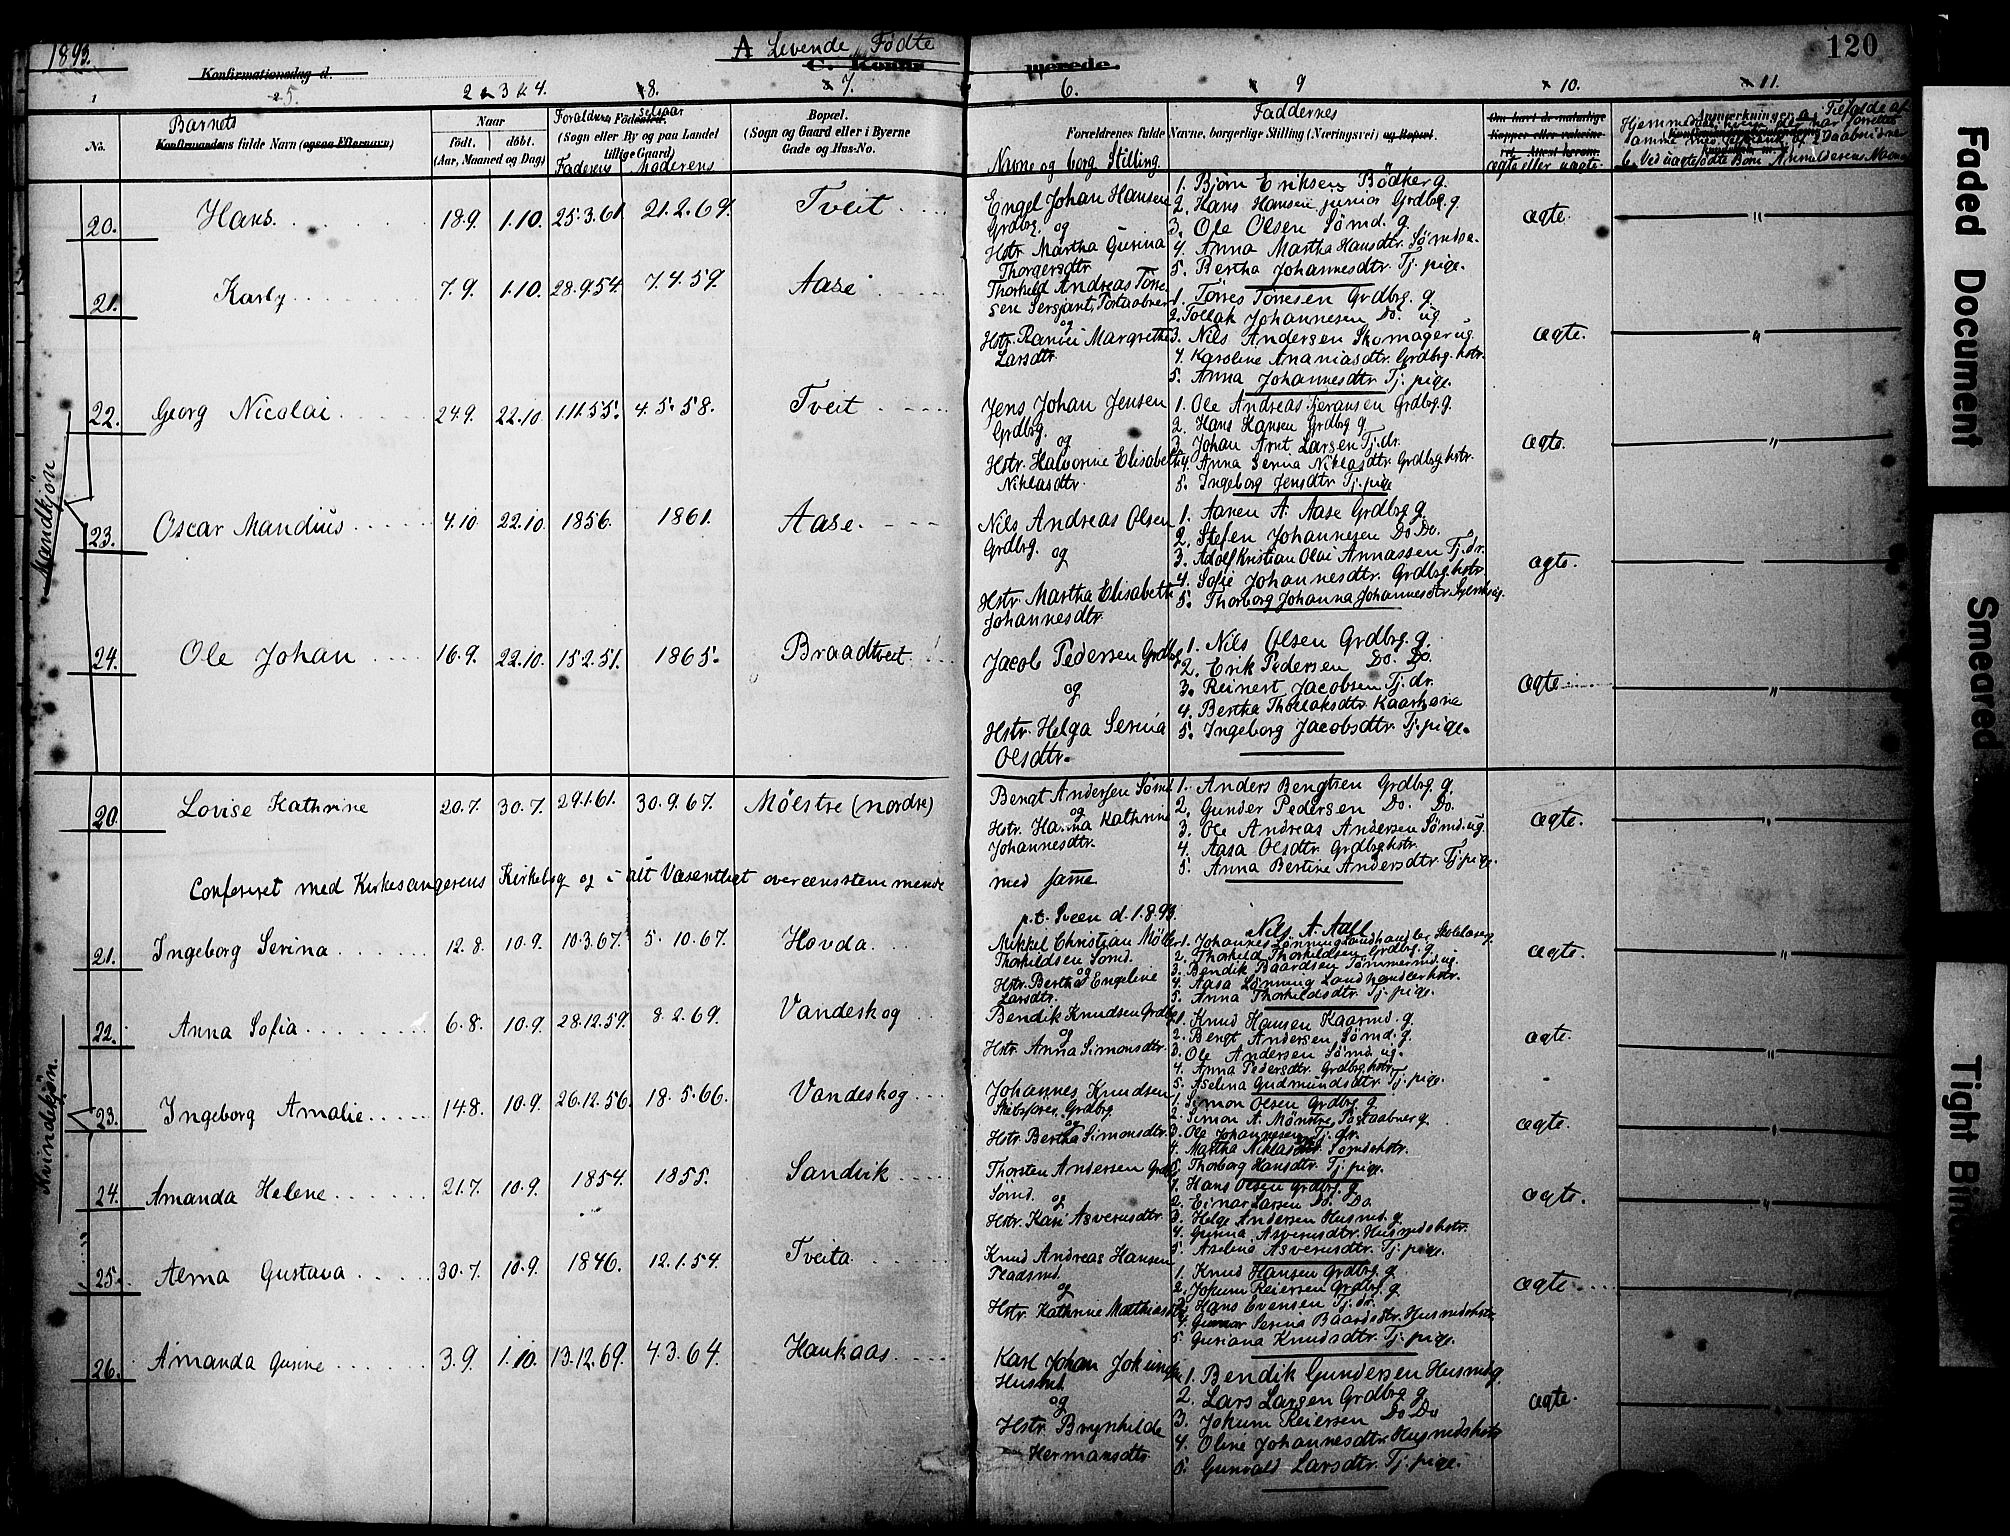 1893.
A Levende Fødte
120
Konfirmationsdag d.
C. Konfir
merede.
1
5.
2 & 3 & 4.
8.
7.
6.
9
10.
11.
No.
Barnets
Konfirmandens fulde Navn (ogsaa Efternavn)
Naar
født. døbt.
(Aar, Maaned og Dag)
Forældrenes Fødselsaar
(Sogn eller By og paa Landet
tillige Gaard)
Faderens Moderens
Bopæl.
(Sogn og Gaard eller i Byerne
Gade og Hus-No.
Forældrenes fulde Navne, borgerlige Stilling (Næringsvei) og Bopæl.
Navne og borg Stilling
Faddernes
Om havt de naturlige
Kopper eller vakcineret,
ægte eller uægte.
Anmærkninger.
Mandkjøn
20. Hans. 18.9. 1.10. 25.3.61 21.2.69. Tveit
Engel Johan Hansen
Grdbrg. og
Hstr. Martha Gurina
Thorgersdtr.
1. Bjørn Eriksen Bødker g.
2. Hans Hansen junior Grdbrg. g.
3. Ole Olsen Sømd. g.
4. Anna Martha Hansdtr. Sømdse.
5. Bertha Johannesdtr. Tj. pige.
ægte. "
21. Karly 7.9. 1.10. 28.9.54 7.4.59. Aase
Thorkild Andreas Tørre
sen Sersjant, Postaabner
og
Hstr. Ranvei Margrethe
Larsdtr.
1. Tørres Tørresen Grdbrg. g.
2. Tollak Johannesen Do. ug
3. Nils Andersen Skomager ug.
4. Karoline Ananiasdtr. Grdbrg. hstr.
5. Anna Johannesdtr. Tj. pige.
ægte. "
22. Georg Nicolai 24.9. 22.10 1.11.55. 4.5.58. Tveit
Jens Johan Jensen
Grdbrg.
og
Hstr. Halvorine Elisabeth
Niklasdtr.
1. Ole Andreas Feransen Grdbrg. g.
2. Hans Hansen Grdbrg g
3. Johan Arnt Larsen Tj. dr.
4. Anna Serina Niklasdtr. Grdbrg hstr.
5. Ingeborg Jensdtr Tj. pige
ægte. "
23. Oscar Mandius 4.10 22.10 1856. 1861. Aase.
Nils Andreas Olsen
Grdbrg.
og
Hstr. Martha Elisabeth
Johannesdtr.
1. Aanen A. Aase Grdbrg. g.
2. Stefen Johannesen Do Do.
3. Adolf Kristian Olai Annassen Tj. dr.
4. Sofie Johannesdtr. Grdbrg. hstr.
5. Thorborg Johanna Johannesdtr.
ægte. "
24. Ole Johan 16.9. 22.10. 15.2.51. 1865. Braadtveit.
Jacob Pedersen Grdbrg
og
Hstr. Helga Serina
Olsdtr.
1. Nils Olsen Grdbrg. g.
2. Erik Pedersen Do. Do.
3. Reinert Jacobsen Tj. dr.
4. Bertha Thollaksdtr. Kaarkone
5. Ingeborg Jacobsdtr. Tj. pige.
ægte "
Kvindekjøn.
20. Lovise Kathrine 20.7. 30.7. 29.1.61. 30.9.67. Mölstre (nordre)
Bengt Andersen Sømd.
og
Hstr. Hanna Kathrine
Johannesdtr.
1. Anders Bengtsen Grdbrg. g.
2. Gunder Pedersen Do. Do.
3. Ole Andreas Andersen Sømd. ug.
4. Aasa Olsdtr. Grdbrg hstr.
5. Anna Bertine Andersdtr. Tj. pige.
ægte. "
Confereret med Kirkesangerens Kirkebog og i alt Væsentligt overeensstemmende
med samme
p.t. Sveen d. 1.8.93.
Nils A. Aall
21. Ingeborg Serina 12.8. 10.9. 10.3.67. 5.10.67. Hovda.
Mikkel Christian Möller
Thorkildsen Sømd.
og
Hstr. Bertha Engeline
Larsdtr.
1. Johannes Lønning Landhandler
2. Thorkild Thorkildsen Grdbrg. g
3. Bendik Baardsen Tømmermd. ug.
4. Aasa Lønning Landhandlerhstr.
5. Anna Thorkildsdtr. Tj. pige.
ægte. "
22. Anna Sofia 6.8. 10.9. 28.12.59. 8.2.69. Vandeskog
Bendik Knudsen Grdbrg
og
Hstr. Anna Simonsdtr.
1. Knud Hansen Kaarmd. g.
2. Bengt Andersen Sømd. g.
3. Ole Andersen Sømd. ug.
4. Anna Pedersdtr. Grdbrg hstr.
5. Aselina Gudmundsdtr. Tj. pige.
ægte. "
23. Ingeborg Amalie 14.8. 10.9. 26.12.56. 18.5.66. Vandeskog
Johannes Knudsen
Skibsfører, Grdbrg
og
Hstr. Bertha Simonsdtr.
1. Simon Olsen Grdbrg. g
2. Simon A. Mønstre, Postaabner g.
3. Ole Johannesen Tj. dr.
4. Martha Niklasdtr. Sømdshstr.
5. Thorborg Hansdtr. Tj. pige.
ægte. "
24. Amanda Helene 21.7. 10.9. 1854. 1855. Sandvik
Thorsten Andersen
Sømd.
og
Hstr. Kari Asverusdtr.
1. Hans Olsen Grdbrg. g
2. Einar Larsen Do. Do
3. Helge Andersen Husmd. g.
4. Gunna Asverusdtr. Husmdshstr.
5. Aselene Asverusdtr. Tj. pige.
ægte. "
25. Alma Gustava 30.7. 10.9. 1846. 12.1.54. Tveita
Knud Andreas Hansen
Pladsmd.
og
Hstr. Kathrine Mathiasdtr
1. Knud Hansen Grdbrg. g
2. Jokum Reiersen Grdbrg. g
3. Hans Evensen Tj. dr.
4. Gunnar Serina Baardsdtr. Husmdshstr.
5. Guriana Knudsdtr. Tj. pige.
ægte "
26. Amanda Gurine 3.9. 1.10. 13.12.69. 4.3.64. Haukaas.
Karl Johan Jokumsen
Husmd.
og
Hstr. Brynhilde
Hermansdtr
1. Bendik Gundersen Husmd g.
2. Lars Larsen Grdbrg g.
3. Jokum Reiersen Do Do
4. Oline Johannesdtr. Husmdshstr
5. Gunvald Larsdtr. Tj. pige.
ægte. "
Faded Document
Smeared
Tight Bind